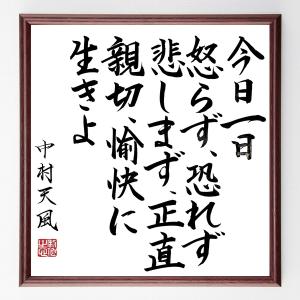 今日一日
怒らず、恐れず
悲しまず、正直
親切、愉快に
生きよ
中村天風